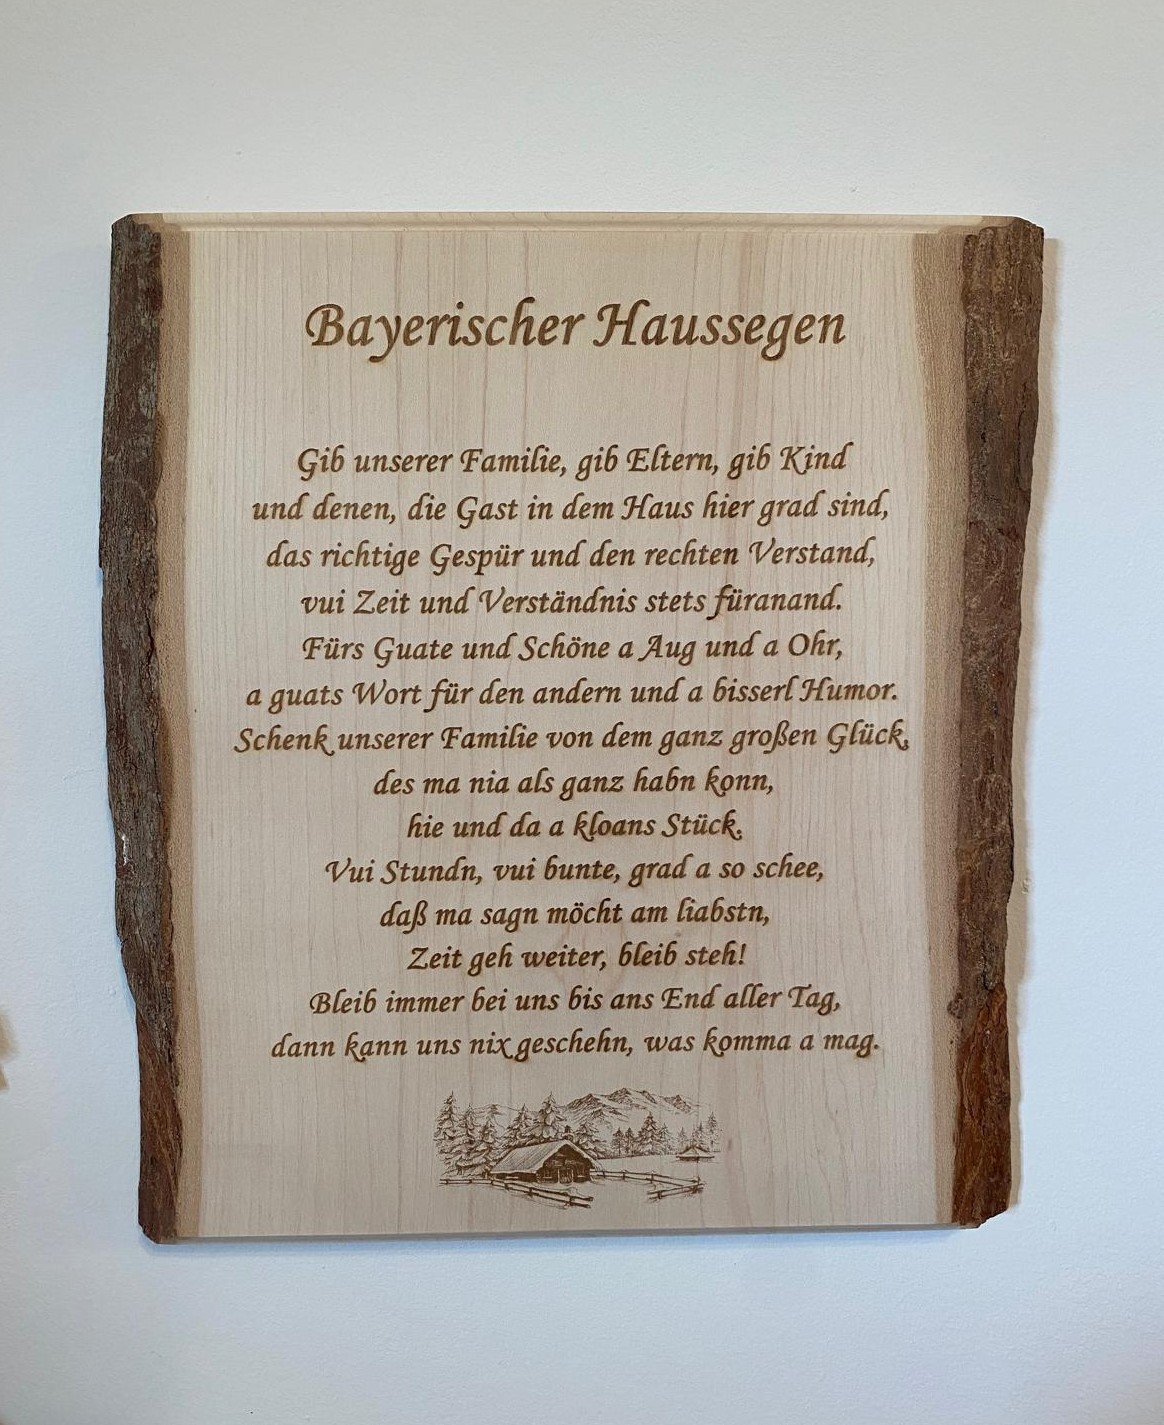 Bayerischer Haussegen
Gib unserer Familie, gib Eltern, gib Kind
und denen, die Gast in dem Haus hier grad sind,
das richtige Gespür und den rechten Verstand,
vui Zeit und Verständnis stets füranand.
Fürs Guate und Schöne a Aug und a Ohr,
a guats Wort für den andern und a bisserl Humor.
Schenk unserer Familie von dem ganz großen Glück,
des ma nia als ganz habn konn,
hie und da a kloans Stück.
Vui Stundn, vui bunte, grad a so schee,
daß ma sagn möcht am liabstn,
Zeit geh weiter, bleib steh!
Bleib immer bei uns bis ans End aller Tag,
dann kann uns nix geschehn, was komma a mag.